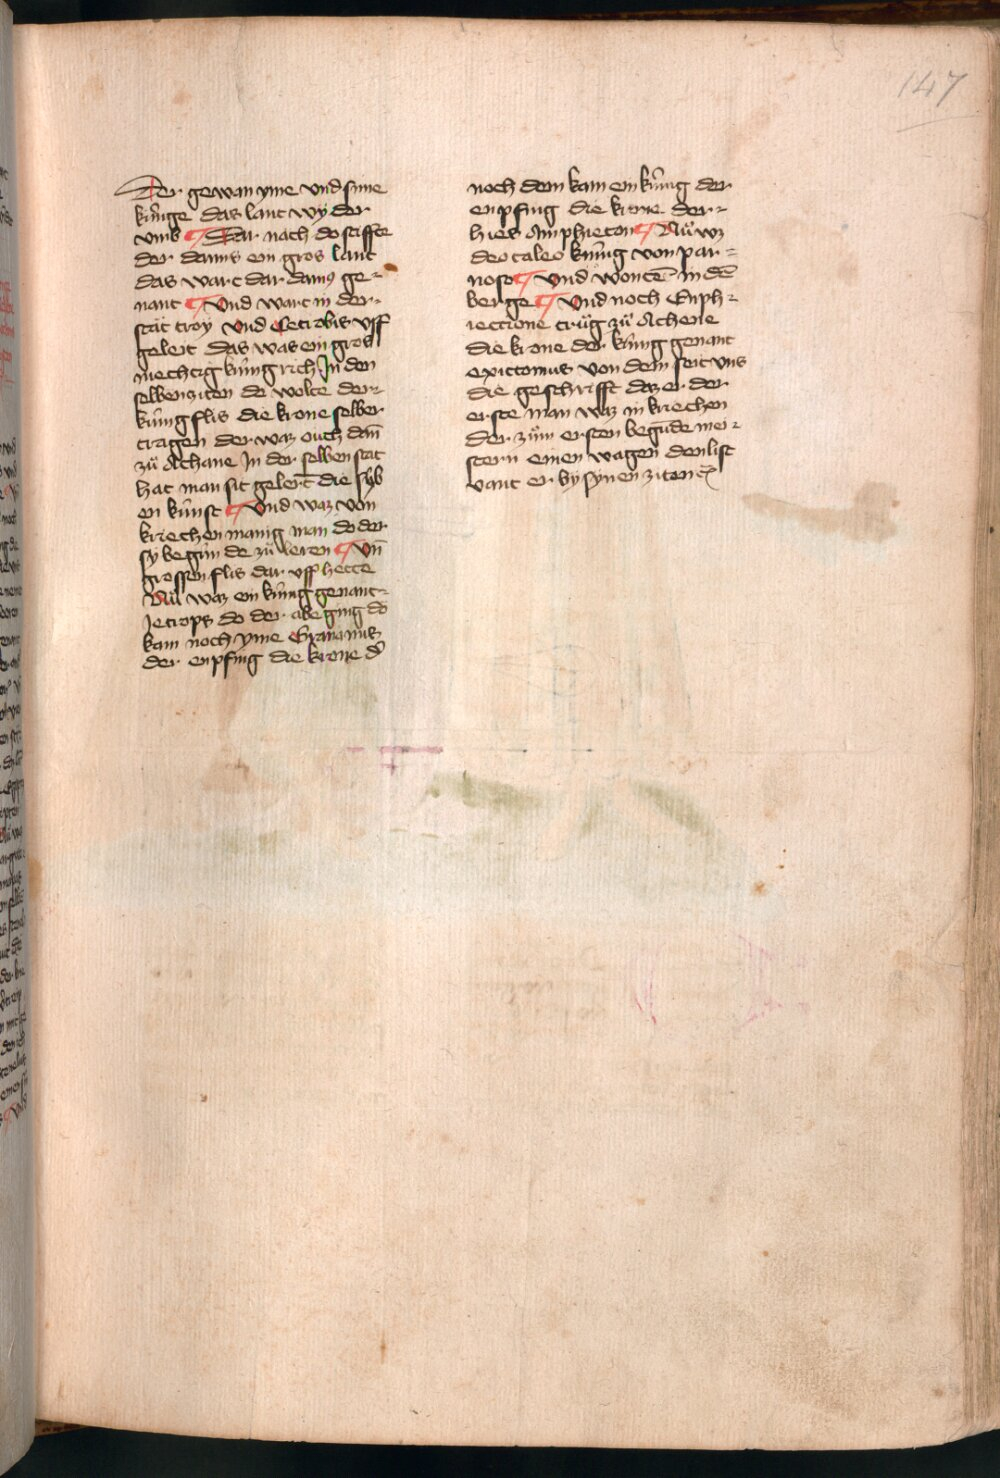 147
Der gewan yme vnd sune
kúnige das lant wyder
vmb ¶ Dar nach do stiffte
der danus ein gros lant
das wart dar danus ge-
nant ¶ Vnd wart in der
stat troy vnd Cetrobis vff
geleit das was ein gros
mechtig kúnigrich In den
selben ziten do wolte der
kúnig flis die krone selber
tragen der waz ouch dañ
zů Achane In der selben stat
hat man sit gelert die syb
en kúnst ¶ Vnd waz von
kriechen manig man do der
sy begún de zů leren ¶ Vñ
grossen flis dar vff hette
Nů waz ein kúnig genant
Jecrops do der abe ging do
kam noch yme Granamus
der enpfing die krone d'
noch dem kam ein kúnig der
enpfing die krone der
hies Amphiecon ¶ Nů wz
deocaleo kúnig von par=
noso ¶ Vnd wontē in dē
berge ¶ Vnd noch Enph=
iectione trůg zů Athene
die krone der kúnig genant
exictomus von dem seit vns
die geschrifft daz er der
erste man waz in kriechen
der zům ersten begūde mei=
stern einen wagen den list
vant er by synen ziten